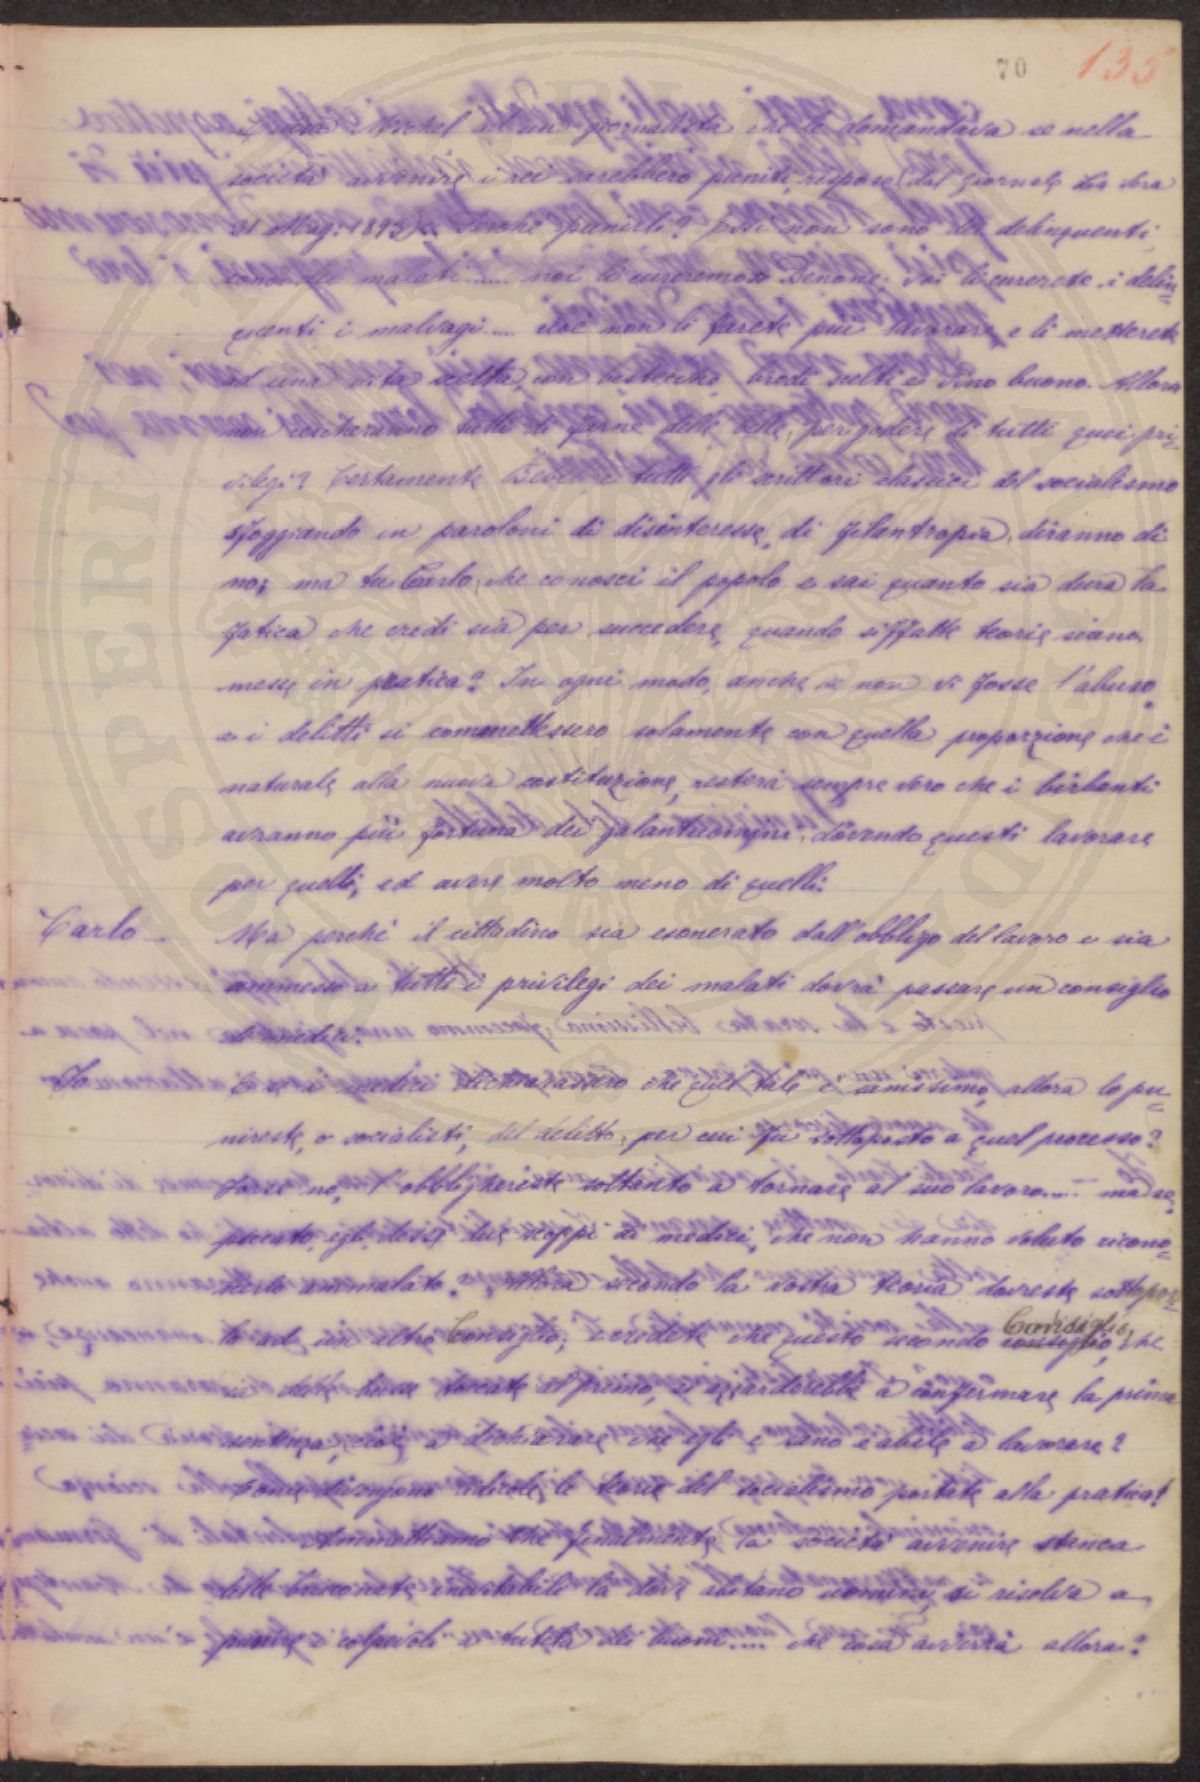 70 135
Michel ad un giornalista che le domandava se nella
società avvenire i rei sarebbero puniti, rispose (dal giornale La Sera
21 Mag: 1895) Perchè punirli? Essi non sono dei delinquenti,
sono dei malati...... noi li cureremo. Benone: voi li curerete i delin=
quenti i malvagi.... cioè non li farete più lavorare, e li metterete
ad una vita scelta, con bistecche, brodi scelti e vino buono. Allora
non tutti di farne delle belle, per godere di tutti quei pri=
vilegi? Certamente Bebel e tutti gli scrittori classici del socialismo
sfoggiando in paroloni di disinteresse, di filantropia, diranno di
no; ma tu Carlo, che conosci il popolo e sai quanto sia dura la
fatica, che credi sia per succedere, quando siffatte teorie siano
messe in pratica? In ogni modo, anche se non vi fosse l'abuso,
e i delitti si commettessero solamente con quella proporzione che è
naturale alla nuova costituzione, resterà sempre vero che i birbanti
avranno più fortuna dei galantuomini, dovendo questi lavorare
per quelli, ed avere molto meno di quelli.
Carlo — Ma perchè il cittadino sia esonerato dall'obbligo del lavoro e sia
ammesso a tutti i privilegi dei malati dovrà passare un consiglio
di medici.
Io — E se i medici dichiarassero che quel tale è sanissimo, allora lo pu=
nireste, o socialisti, del delitto, per cui fu sottoposto a quel processo?
Forse no, l'obblighereste soltanto a tornare al suo lavoro..... ma se,
seccato, egli desse due schioppi ai medici, che non hanno voluto ricono=
scerlo ammalato. Allora secondo la vostra teoria dovreste sottopor=
lo ad un altro Consiglio; e credete che questo secondo Consiglio, che
sa delle busse toccate al primo, si azzarderebbe a confermare la prima
sentenza, cioè a dichiarare che egli è sano e abile a lavorare?
Come divengono ridicole le teorie del socialismo portate alla pratica!
Ammettiamo che finalmente la società avvenire stanca
delle bricconate inevitabili là dove abitano uomini, si risolva a
punire i colpevoli a tutela dei buoni..... che cosa avverrà allora?